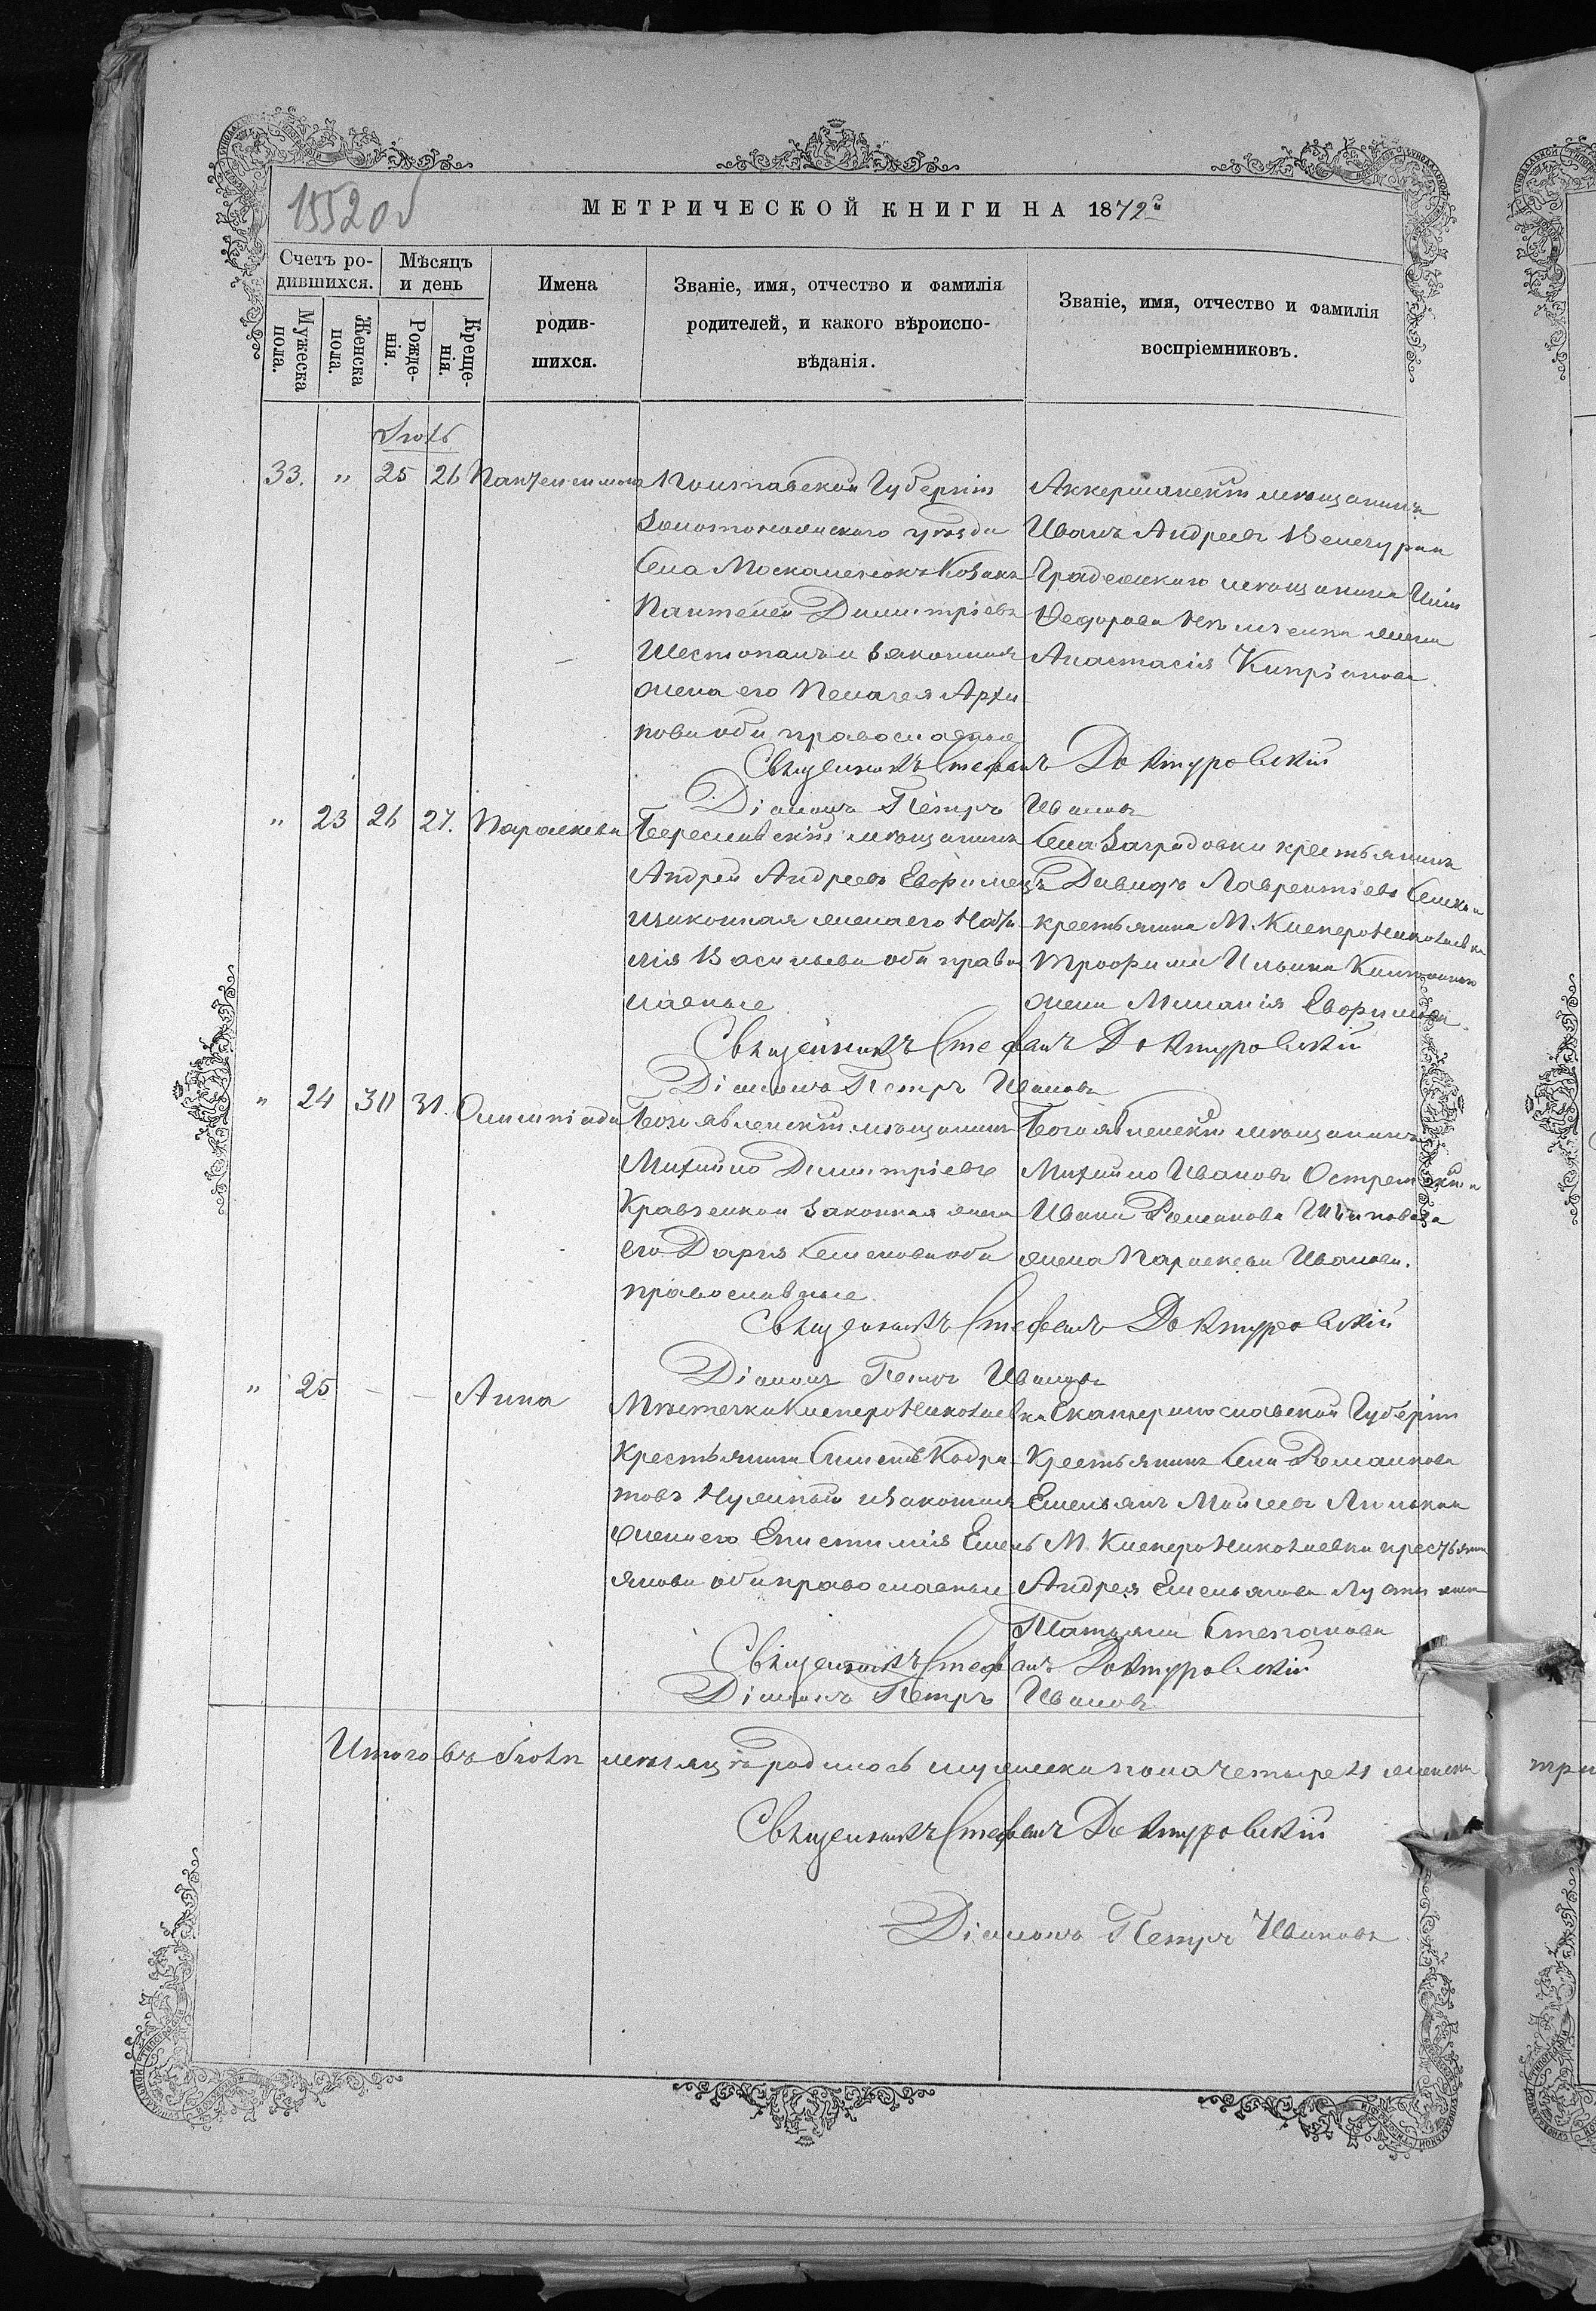 1552 об
МЕТРИЧЕСКОЙ КНИГИ НА 1872й
Счетъ ро-
дившихся.
Мѣсяцъ
и день
Мужеска
пола.
Женска
пола.
Рожде-
нія.
Креще-
нія.
Имена
родив-
шихся.
Званіе, имя, отчество и фамилія
родителей, и какого вѣроиспо-
вѣданія.
Званіе, имя, отчество и фамилія
воспріемниковъ.
33. " 25 26 Пантелеимонъ
Полтавской Губерніи
Золотоношскаго уѣзда
Села Москаленокъ Козакъ
Пантелей Димитріевъ
Шестопалъ и законная
жена его Пелагея Архи
пова оба православные
Аккерманскій мѣщанинъ
Иванъ Андреевъ
мѣщанина
Федорова жена
Анастасія Кипріанова
Священникъ Стефанъ Доктуровскій
Діаконъ Петръ Ивановъ
" 23 26 27. Параскева
Бериславскій мѣщанинъ
Андрей Андреевъ
и законная жена его Ната
лія Васильева оба право
славные
Села Заградовки крестьянинъ
Давидъ Лаврентіевъ
крестьянина М.
Трофима Ильина
жена Меланія
Священникъ Стефанъ Доктуровскій
Діаконъ Петръ Ивановъ
" 24 30 31. Олимпіада
Богоявленскій мѣщанинъ
Михайло Димитріевъ
Кравченко и законная жена
его Дарія Семенова оба
православные
Богоявленскій мѣщанинъ
Михайло Ивановъ
Ивана Романова
жена Параскева Иванова.
Священникъ Стефанъ Доктуровскій
Діаконъ Петръ Ивановъ
" 25 – – Анна
Мѣстечка
Крестьянинъ Кодра
товъ и законная
жена его Епистимія Емель
янова оба православные
Екатеринославской Губерніи
Крестьянинъ села Романкова
Емельянъ
М. крестьянина
Андрея Емельянова жена
Татьяна Степанова
Священникъ Стефанъ Доктуровскій
Діаконъ Петръ Ивановъ
Итого въ мѣсяцѣ родилось мужеска пола четыре и женска три
Священникъ Стефанъ Доктуровскій
Діаконъ Петръ Ивановъ